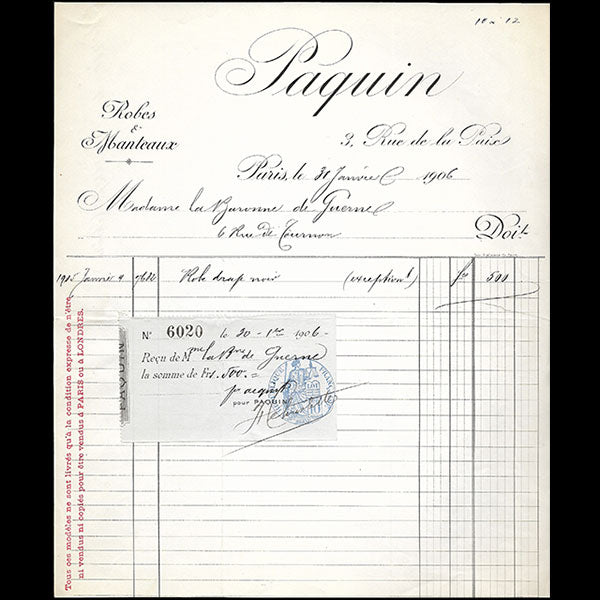 10 a 12
Paquin
Robes
&
Manteaux
3, Rue de la Paix
Paris, le 31 Janvier 1906
Madame la Baronne de Guerne
6 Rue de Tournon
Doit
1905 Janvier 9 Robe drap noir (exception) fr 500
PAQUIN
N° 6020 le 20 - 1re 1906 -
Reçu de Mme la Bne de Guerne
la somme de Frs. 500. =
pr acquit
pour PAQUIN
10
Tous ces modèles ne sont livrés qu'à la condition expresse de n'être
ni vendus ni copiés pour être vendus à PARIS ou à LONDRES.